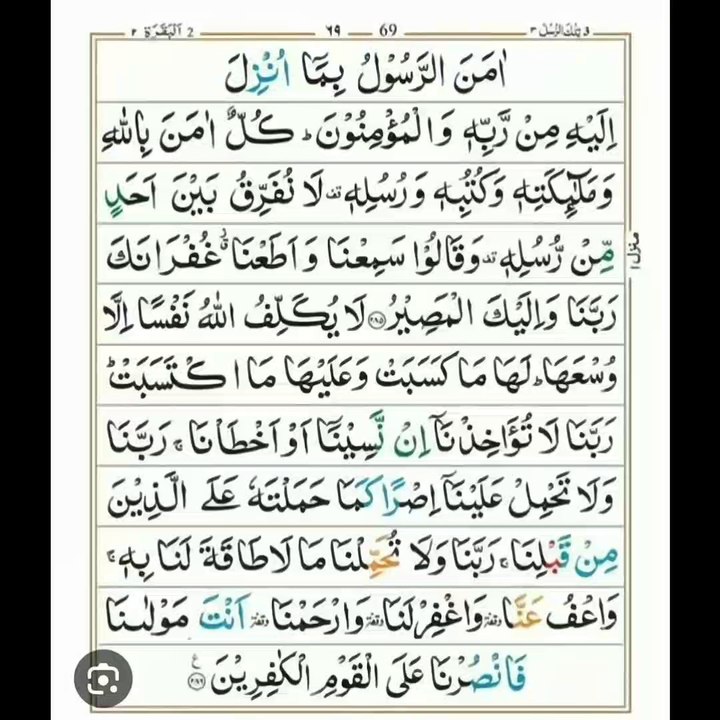 3 تِلْكَ الرُّسُل ٣ 69 ٦٩ 2 اَلْبَقَرَة ٢
اٰمَنَ الرَّسُوْلُ بِمَاۤ اُنْزِلَ
اِلَيْهِ مِنْ رَّبِّهٖ وَالْمُؤْمِنُوْنَ ؕ كُلٌّ اٰمَنَ بِاللّٰهِ
وَمَلٰٓئِكَتِهٖ وَكُتُبِهٖ وَرُسُلِهٖ قف لَا نُفَرِّقُ بَيْنَ اَحَدٍ
مِّنْ رُّسُلِهٖ قف وَقَالُوْا سَمِعْنَا وَاَطَعْنَا غُفْرَانَكَ
رَبَّنَا وَاِلَيْكَ الْمَصِيْرُ ﴿۲۸۵﴾ لَا يُكَلِّفُ اللّٰهُ نَفْسًا اِلَّا
وُسْعَهَا ؕ لَهَا مَا كَسَبَتْ وَعَلَيْهَا مَا اكْتَسَبَتْ ؕ
رَبَّنَا لَا تُؤَاخِذْنَاۤ اِنْ نَّسِيْنَاۤ اَوْ اَخْطَاْنَا ۚ رَبَّنَا
وَلَا تَحْمِلْ عَلَيْنَاۤ اِصْرًا كَمَا حَمَلْتَهٗ عَلَى الَّذِيْنَ
مِنْ قَبْلِنَا ۚ رَبَّنَا وَلَا تُحَمِّلْنَا مَا لَا طَاقَةَ لَنَا بِهٖ ۚ
وَاعْفُ عَنَّا وقفة وَاغْفِرْ لَنَا وقفة وَارْحَمْنَا وقفة اَنْتَ مَوْلٰىنَا
فَانْصُرْنَا عَلَى الْقَوْمِ الْكٰفِرِيْنَ ﴿۲۸۶﴾ ع
منزل ١